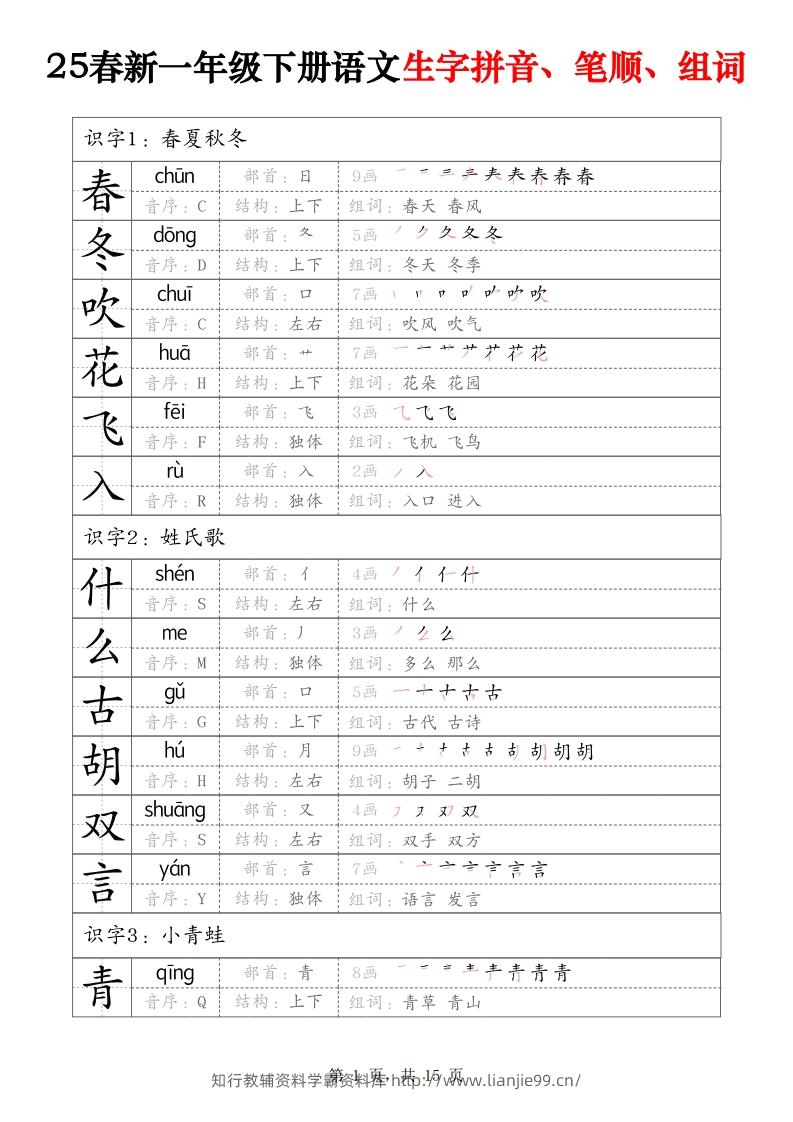 25春新一年级下册语文生字拼音、笔顺、组词
识字1：春夏秋冬
春 chūn 部首：日 9画 春春
音序：C 结构：上下 组词：春天 春风
冬 dōng 部首：夂 5画 冬
音序：D 结构：上下 组词：冬天 冬季
吹 chuī 部首：口 7画 吹
音序：C 结构：左右 组词：吹风 吹气
花 huā 部首：艹 7画 花
音序：H 结构：上下 组词：花朵 花园
飞 fēi 部首：飞 3画 飞
音序：F 结构：独体 组词：飞机 飞鸟
入 rù 部首：入 2画 入
音序：R 结构：独体 组词：入口 进入
识字2：姓氏歌
什 shén 部首：亻 4画 什
音序：S 结构：左右 组词：什么
么 me 部首：丿 3画 么
音序：M 结构：独体 组词：多么 那么
古 gǔ 部首：口 5画 古
音序：G 结构：上下 组词：古代 古诗
胡 hú 部首：月 9画 胡
音序：H 结构：左右 组词：胡子 二胡
双 shuāng 部首：又 4画 双
音序：S 结构：左右 组词：双手 双方
言 yán 部首：言 7画 言
音序：Y 结构：独体 组词：语言 发言
识字3：小青蛙
青 qīng 部首：青 8画 青
音序：Q 结构：上下 组词：青草 青山
第 1 页，共 15 页
知行教辅资料学霸资料库 http://www.lianjie99.cn/